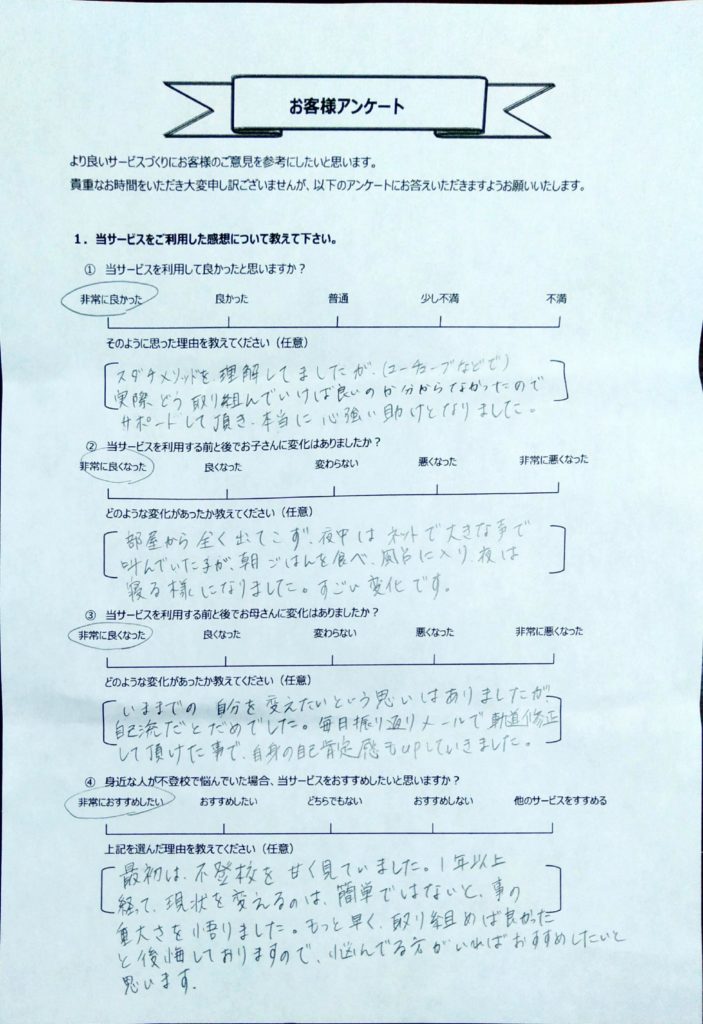 お客様アンケート
より良いサービスづくりにお客様のご意見を参考にしたいと思います。
貴重なお時間をいただき大変申し訳ございませんが、以下のアンケートにお答えいただきますようお願いいたします。
1．当サービスをご利用した感想について教えて下さい。
① 当サービスを利用して良かったと思いますか？
非常に良かった 良かった 普通 少し不満 不満
そのように思った理由を教えてください（任意）
スダチメソッドを、理解してましたが、(ユーチューブなどで)
実際、どう取り組んでいけば良いのか分からなかったので
サポートして頂き、本当に心強い助けとなりました。
② 当サービスを利用する前と後でお子さんに変化はありましたか？
非常に良くなった 良くなった 変わらない 悪くなった 非常に悪くなった
どのような変化があったか教えてください（任意）
部屋から全く出てこず、夜中はネットで大きな事で
叫んでいた子が、朝ごはんを食べ、風呂に入り、夜は
寝る様になりました。すごい変化です。
③ 当サービスを利用する前と後でお母さんに変化はありましたか？
非常に良くなった 良くなった 変わらない 悪くなった 非常に悪くなった
どのような変化があったか教えてください（任意）
いままでの自分を変えたいという思いはありましたが、
自己流だとだめでした。毎日振り返りメールで軌道修正
して頂けた事で、自身の自己肯定感もUPしていきました。
④ 身近な人が不登校で悩んでいた場合、当サービスをおすすめしたいと思いますか？
非常におすすめしたい おすすめしたい どちらでもない おすすめしない 他のサービスをすすめる
上記を選んだ理由を教えてください（任意）
最初は、不登校を甘く見ていました。1年以上
経て、現状を変えるのは、簡単ではないと、事の
重大さを悟りました。もっと早く、取り組めば良かった
と後悔しておりますので、悩んでる方がいればおすすめしたいと
思います。